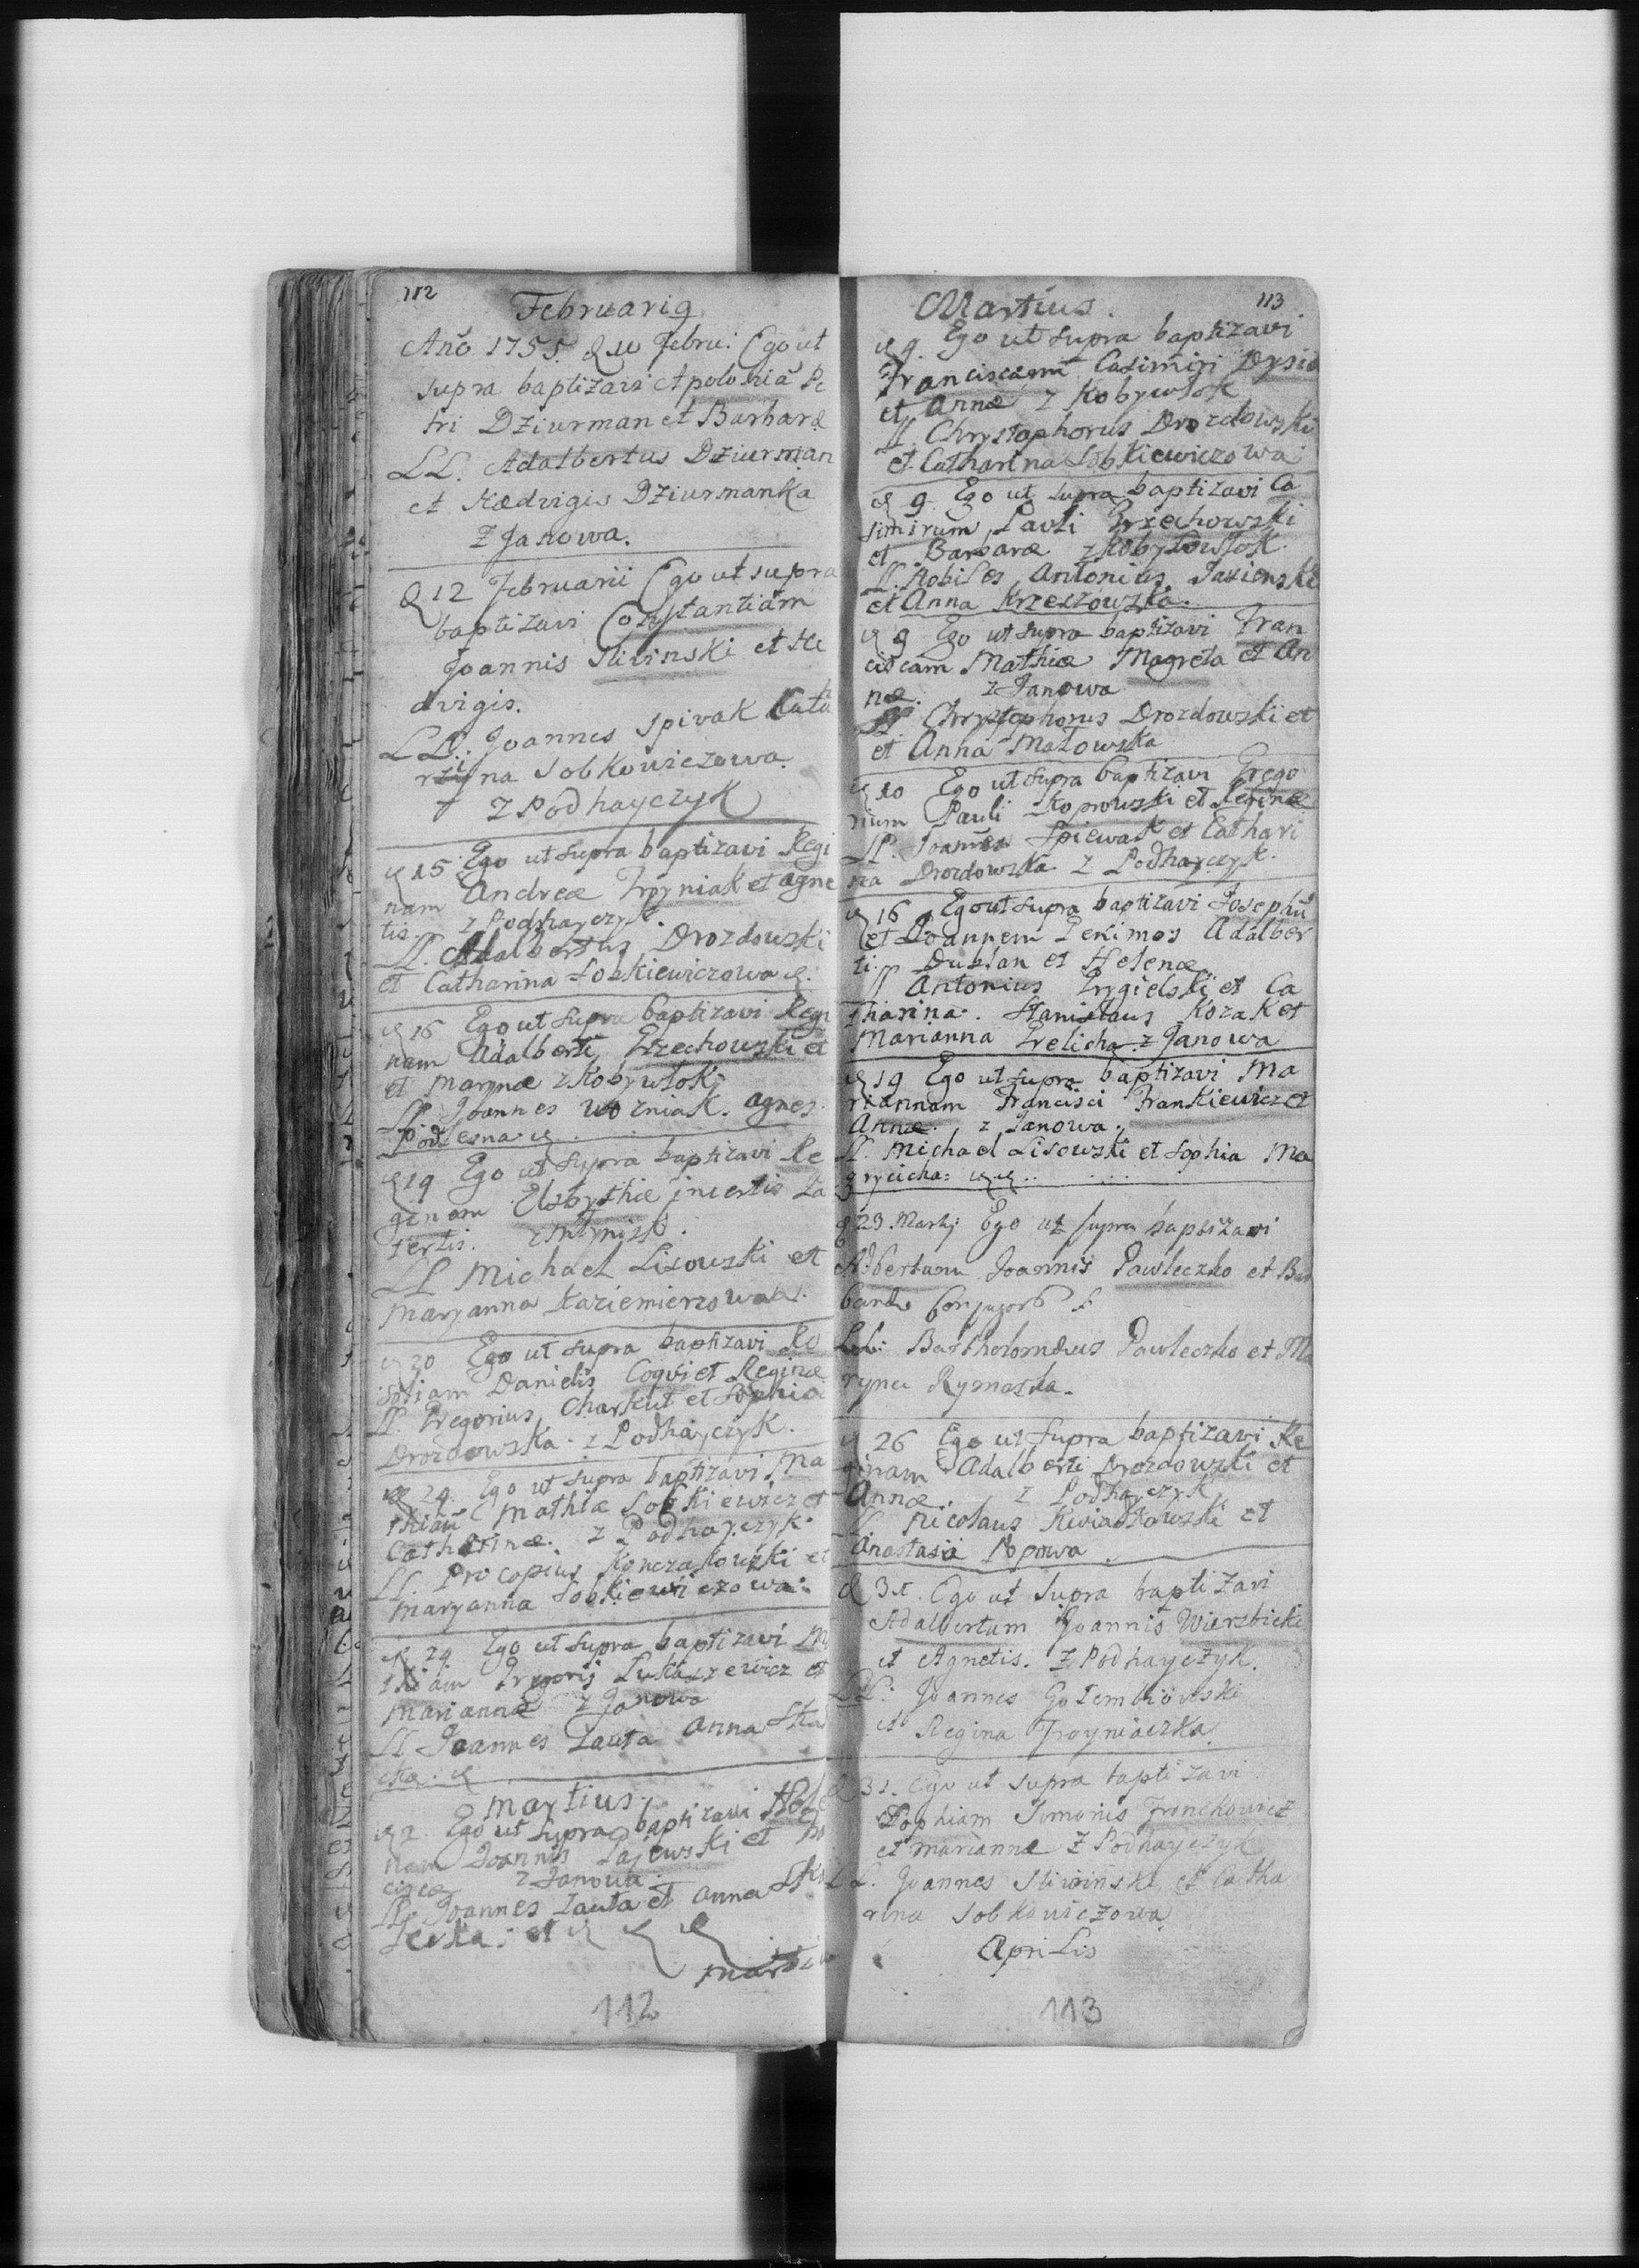 112
Februarig
Año 1755. d 10 Febru: Ego ut
supra baptizavi Apoloniã Pe
tri Dziurman et Barbaræ
LL. Adalbertus Dziurman
et Hedvigis Dziurmanka
z Janowa.
d 12 Februarii Ego ut supra
baptizavi Constantiam
Joannis Sliwinski et He
dvigis.
LL. Joannes Spivak Cata
rzyna Sobkowiczowa.
z Podhayczyk
d 15 Ego ut supra baptizavi Regi
nam Andreæ Troyniak et Agne
tis. z Podhayczyk.
LL. Adalbertus Drozdowski
et Catharina Sobkiewiczowa
d 16 Ego ut supra baptizavi Regi
nam Adalberti Grzechowski et
et Marynæ z Kobywlok
LL Joannes Wozniak. Agnes
Podlesna
d 19 Ego ut supra baptizavi Re
ginam Elsbythæ incertis
LL Michael Lisowski et
Maryanna Kaziemierzowa
d 20 Ego ut supra baptizavi Ro
saliam Danielis Coqui et Reginæ
LL. Gregorius Charkut et Sophia
Drozdowska. z Podhayczyk.
d 24. Ego ut supra baptizavi Ma
thiam Mathiæ Sobkiewicz et
Catharinæ. z Podhayczyk.
LL. Procopius Konczakowski et
Maryanna Sobkiewiczowa.
d 24 Ego ut supra baptizavi Ma
thiam Gregorij Lukaszewicz et
Mariannæ z Janowa
LL Joannes Zauta Anna
Martius
d 2. Ego ut supra baptizavi Hele
nam Joannis Gajewski et
z Janowa.
LL Joannes Zauta et Anna
Martius
112
113
Martius.
d 9. Ego ut supra baptizavi
Franciscam Casimiri Dysio
et Annæ z Kobywlok
LL. Chrystophorus Drozdowski
et Catharina Sobkiewiczowa
d 9. Ego ut supra baptizavi Ca
simirum Pauli Grzechowski
et Barbaræ z Kobylowlok.
LL. Nobiles Antonius Jasienski
et Anna Krzeczowska.
d 9 Ego ut supra baptizavi Fran
ciscam Mathiæ Magreta et An
næ. z Janowa
LL Chrystophorus Drozdowski et
et Anna Malowska
d 10 Ego ut supra baptizavi Grego
rium Pauli Koprowski et Reginæ
LL. Joannes Spiewak et Cathari
na Drozdowska z Podhayczyk.
d 16 Ego ut supra baptizavi Josephũ
et Joannem Gemimos Adalber
ti Dublan et Helenæ
LL Antonius Frygielski et Ca
tharina. Stanislaus Kozak et
Marianna Grelicha z Janowa
d 19 Ego ut supra baptizavi Ma
riannam Francisci Frankiewicz et
Annæ. z Janowa.
LL. Michael Lisowski et Sophia Ma
grycicha:
d 23 Martij Ego ut supra baptizavi
Albertum Joannis Pawleczko et Bar
baræ
LL: Bartholomæus Pawleczko et Ma
ryna Rymaska.
d 26 Ego ut supra baptizavi Re
ginam Adalberti Drozdowski et
Annæ. z Podhayczyk
LL. Nicolaus Kwiatkowski et
Anastasia Popowa
d 31. Ego ut supra baptizavi
Adalbertum Joannis Wierzbicki
et Agnetis. z Podhayczyk.
LL: Joannes Golembiowski
et Regina Troyniaczka.
d 31. Ego ut supra baptizavi
Sophiam Simonis Fronckowicz
et Mariannæ z Podhayczyk
LL. Joannes Sliwinski et Catha
rina Sobkowiczowa
Aprilis
113